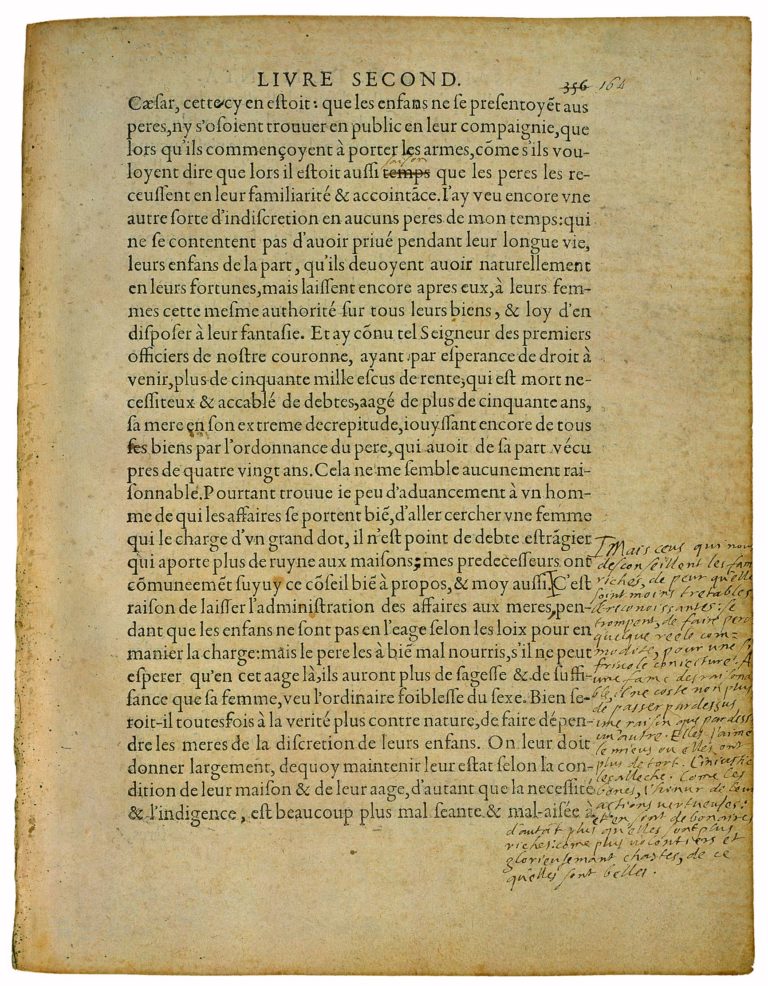 LIVRE SECOND.
356 164
Cæsar, cettecy en estoit: que les enfans ne se presentoyẽt aus
peres, ny s'osoient trouuer en public en leur compaignie, que
lors qu'ils commençoyent à porter les armes, cõme s'ils vou-
saison
loyent dire que lors il estoit aussi temps que les peres les re-
ceussent en leur familiarité & accointãce. I'ay veu encore vne
autre sorte d'indiscretion en aucuns peres de mon temps: qui
ne se contentent pas d'auoir priué pendant leur longue vie,
leurs enfans de la part, qu'ils deuoyent auoir naturellement
en leurs fortunes, mais laissent encore apres eux, à leurs fem-
mes cette mesme authorité sur tous leurs biens, & loy d'en
disposer à leur fantasie. Et ay cõnu tel Seigneur des premiers
officiers de nostre couronne, ayant par esperance de droit à
venir, plus de cinquante mille escus de rente, qui est mort ne-
cessiteux & accablé de debtes, aagé de plus de cinquante ans,
sa mere en son extreme decrepitude, iouyssant encore de tous
ses biens par l'ordonnance du pere, qui auoit de sa part vécu
pres de quatre vingt ans. Cela ne me semble aucunement rai-
sonnable. Pourtant trouue ie peu d'aduancement à vn hom-
me de qui les affaires se portent biẽ, d'aller cercher vne femme
qui le charge d'vn grand dot, il n'est point de debte estrãgier
qui aporte plus de ruyne aux maisons; mes predecesseurs ont
cõmuneemẽt suyuy ce cõseil biẽ à propos, & moy aussi. C'est
raison de laisser l'administration des affaires aux meres, pen-
dant que les enfans ne sont pas en l'eage selon les loix pour en
manier la charge: mais le pere les à biẽ mal nourris, s'il ne peut
esperer qu'en cet aage là, ils auront plus de sagesse & de suffi-
sance que sa femme, veu l'ordinaire foiblesse du sexe. Bien se-
roit-il toutesfois à la verité plus contre nature, de faire dépen-
dre les meres de la discretion de leurs enfans. On leur doit
donner largement, dequoy maintenir leur estat selon la con-
dition de leur maison & de leur aage, d'autant que la necessité
& l'indigence, est beaucoup plus mal seante & mal-aisée à
Mais ceus qui nous
desconseillent les fam
riches, de peur qu'elles
soint moins tretables
& reconoissantes: se
trompent, de faire perdre
quelque reele com-
modite, pour une si
friuole coniecture. A
une fame desraisona
ble, il ne coste non plus
de passer par dessus
une raison que par dessus
un'autre. Elles s'aime
le mieus ou elles ont
plus de tort. L'iniustice
les alleche: Come les
bones, l'honur de leurs
actions vertueuses:
et en sont debonaires
d'autãt plus qu'elles sont plus
riches: come plus volontiers et
glorieusemant chastes, de ce
qu'elles sont belles.